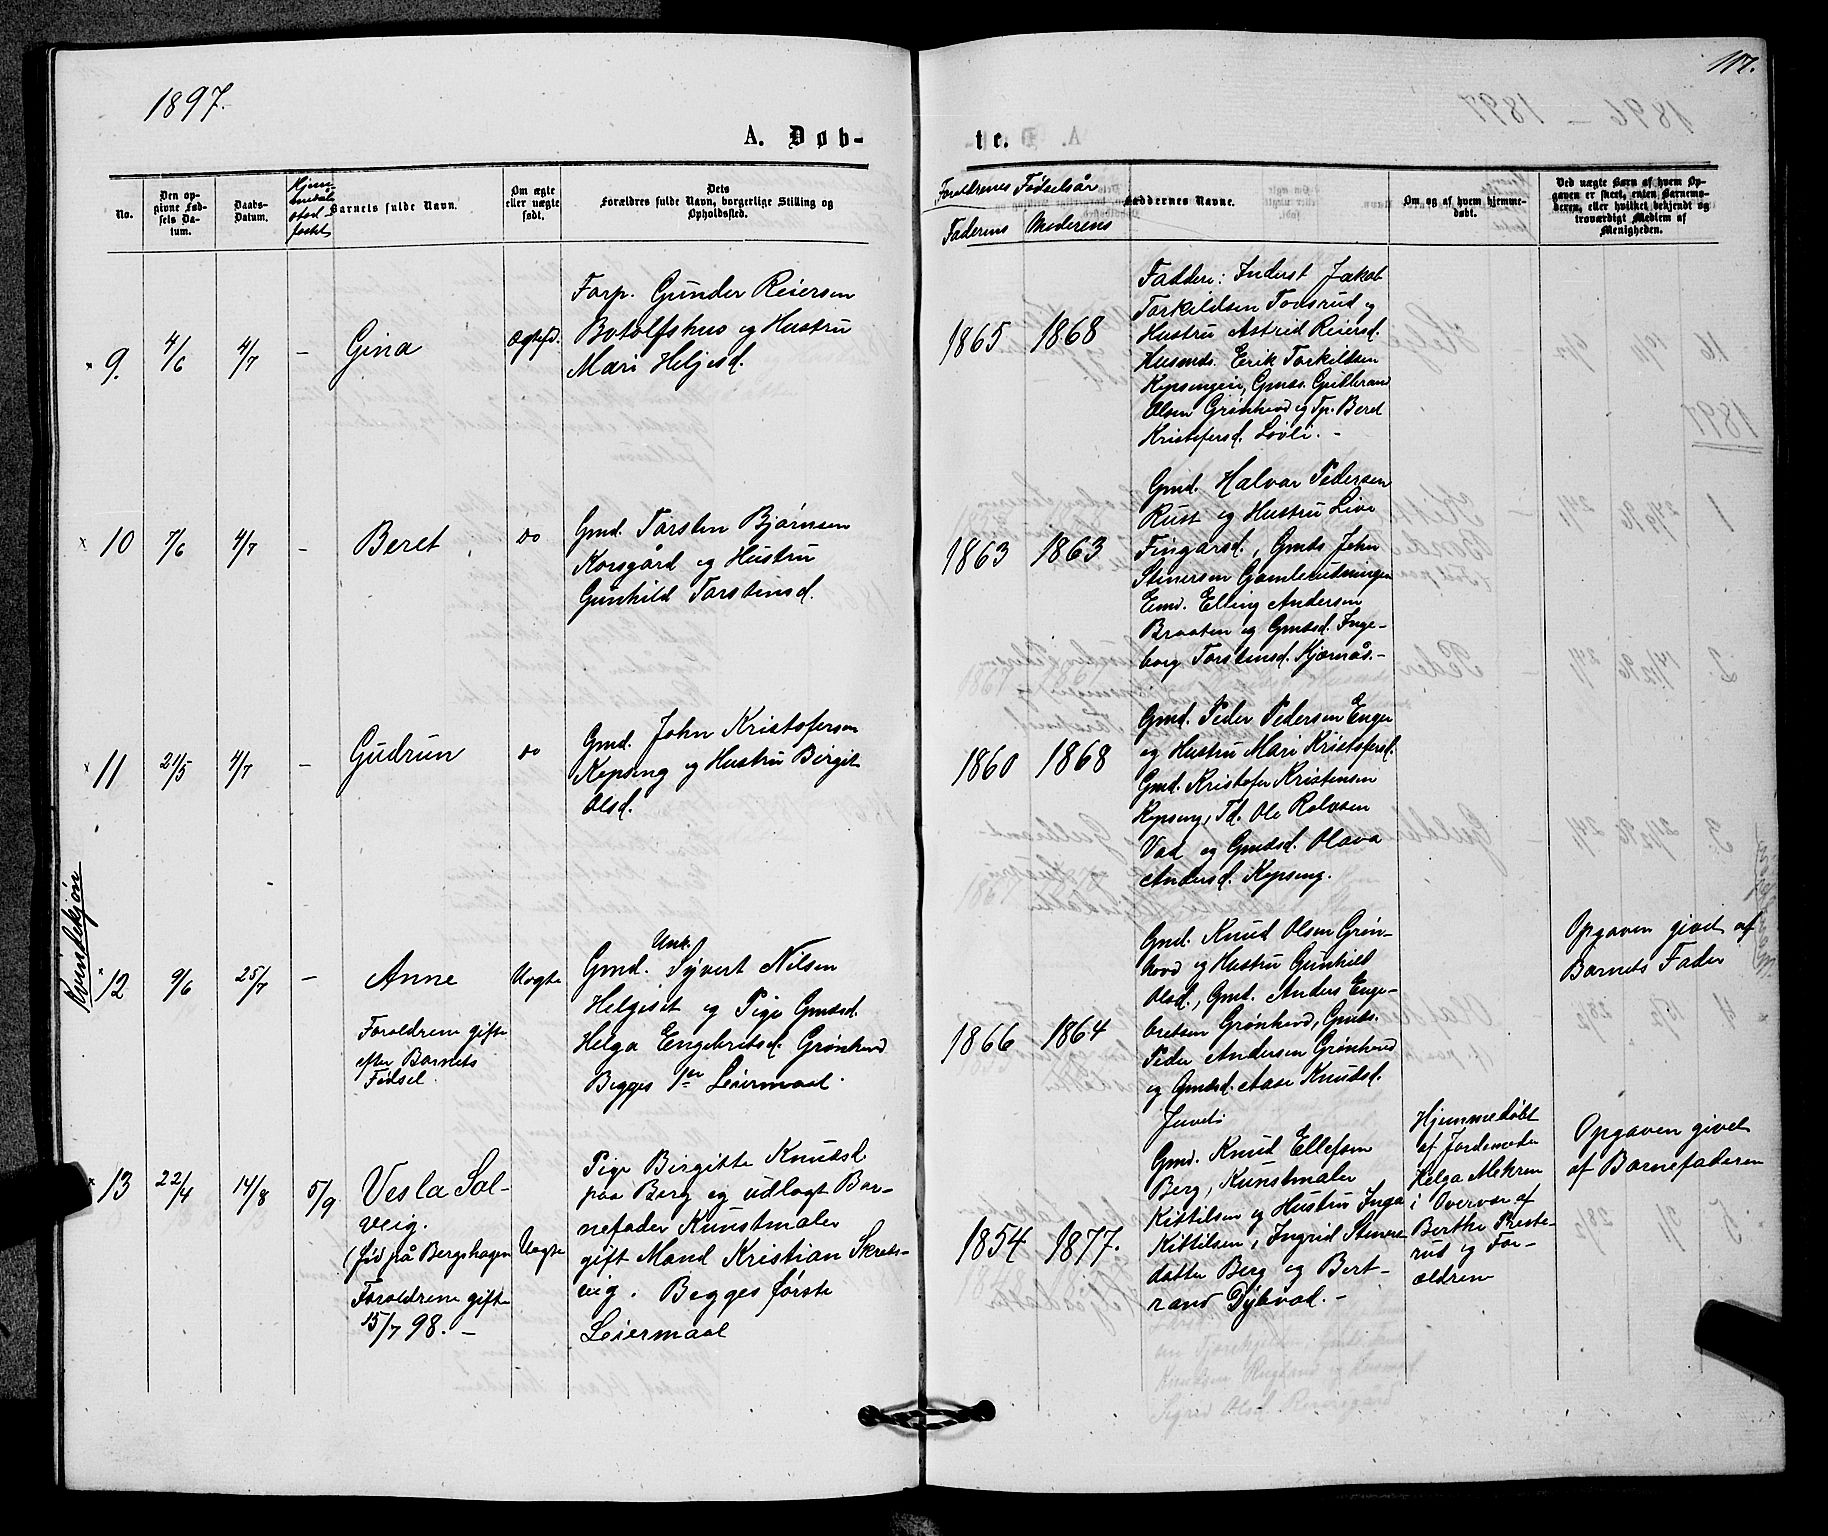 1897.
117.
A. Døb-
te.
No.
Den op-
givne Fød-
sels Da-
tum.
Daabs-
Datum.
Barnets fulde Navn.
Om ægte
eller uægte
født.
Dets
Forældres fulde Navn, borgerlige Stilling og
Opholdssted.
Forældrenes Fødselsår
Faderens Moderens
Faddernes Navne.
Om og af hvem hjemme-
døbt.
Ved uægte Børn af hvem Op-
gaven er skeet, enten Barnemo-
deren, eller hvilket bekjendt og
troværdigt Medlem af
Menigheden.
Kvindekjøn
9. 4/6 4/7 – Gina Ægtefd.
Forp. Gunder Reiersen
Botolfshus og Hustru
Mari Heljesd.
1865 1868
Faddere: Inderst Jakob
Torkildsen Todsrud og
Hustru Astrid Reiersd.
Husmds. Erik Torkildsen
Kepsengeie, Gmds. Gulbrand
Olsen Grønhovd og Tp. Beret
Kristofersd. Løvli. –
10 7/6 4/7 – Beret do
Gmd. Torsten Bjørnsen
Korsgård og Hustru
Gunhild Torstensd.
1863 1863
Gmd. Halvar Pedersen
Rust og Hustru Live
Fingarsd., Gmds John
Stenersen Gamleudningen
Emd. Elling Andersen
Braaten og Gmdsd. Inge-
borg Torstensd. Kjærnås. –
11 21/5 4/7 – Gudrun do
Gmd. John Kristofersen
Kepseng og Hustru Birgit
Olsd.
1860 1868
Gmd. Peder Pedersen Enger
og Hustru Mari Kristofersd.
Gmd. Kristofer Kristensen
Kepseng, Td. Ole Rolvsen
Vad og Gmdsd. Olava
Andersd. Kepseng.
12 9/6 25/7 – Anne Uægte
Forældrene gifte
efter Barnets
Fødsel.
Unk.
Gmd. Syvert Nilsen
Helgeset og Pige Gmdsd.
Helga Engebretsd. Grønhovd
Begges 1ste Leiermaal.
1866 1864
Gmd. Knud Olsen Grøn-
hovd og Hustru Gunhild
Olsd., Gmd. Anders Enge-
bretsen Grønhovd, Gmds.
Peder Andersen Grønhovd
og Gmdsd. Aase Knudsd.
Juveli
Opgaven givet af
Barnets Fader
13 22/4 14/8 5/9 Vesla Sol-
veig.
(fød på Bergshagen Uægte
Forældrene gifte
15/7 98. –
Pige Birgitte Knudsd.
paa Berg og udlagt Bar-
nefader Kunstmaler
gift Mand Kristian Skreds-
vig. Begges første
Leiermaal
1854 1877.
Gmd. Knud Ellefsen
Berg, Kunstmaler
Kittilsen og Hustru Inga
Kittilsen, Ingrid Steners-
datter Berg og Bert-
rand Dybvad. –
Hjemmedøbt
af Jordemoder
Helga Mehren
i Overvær af
Berthe Preste-
rud og For-
ældrene
Opgaven givet
af Barnefaderen